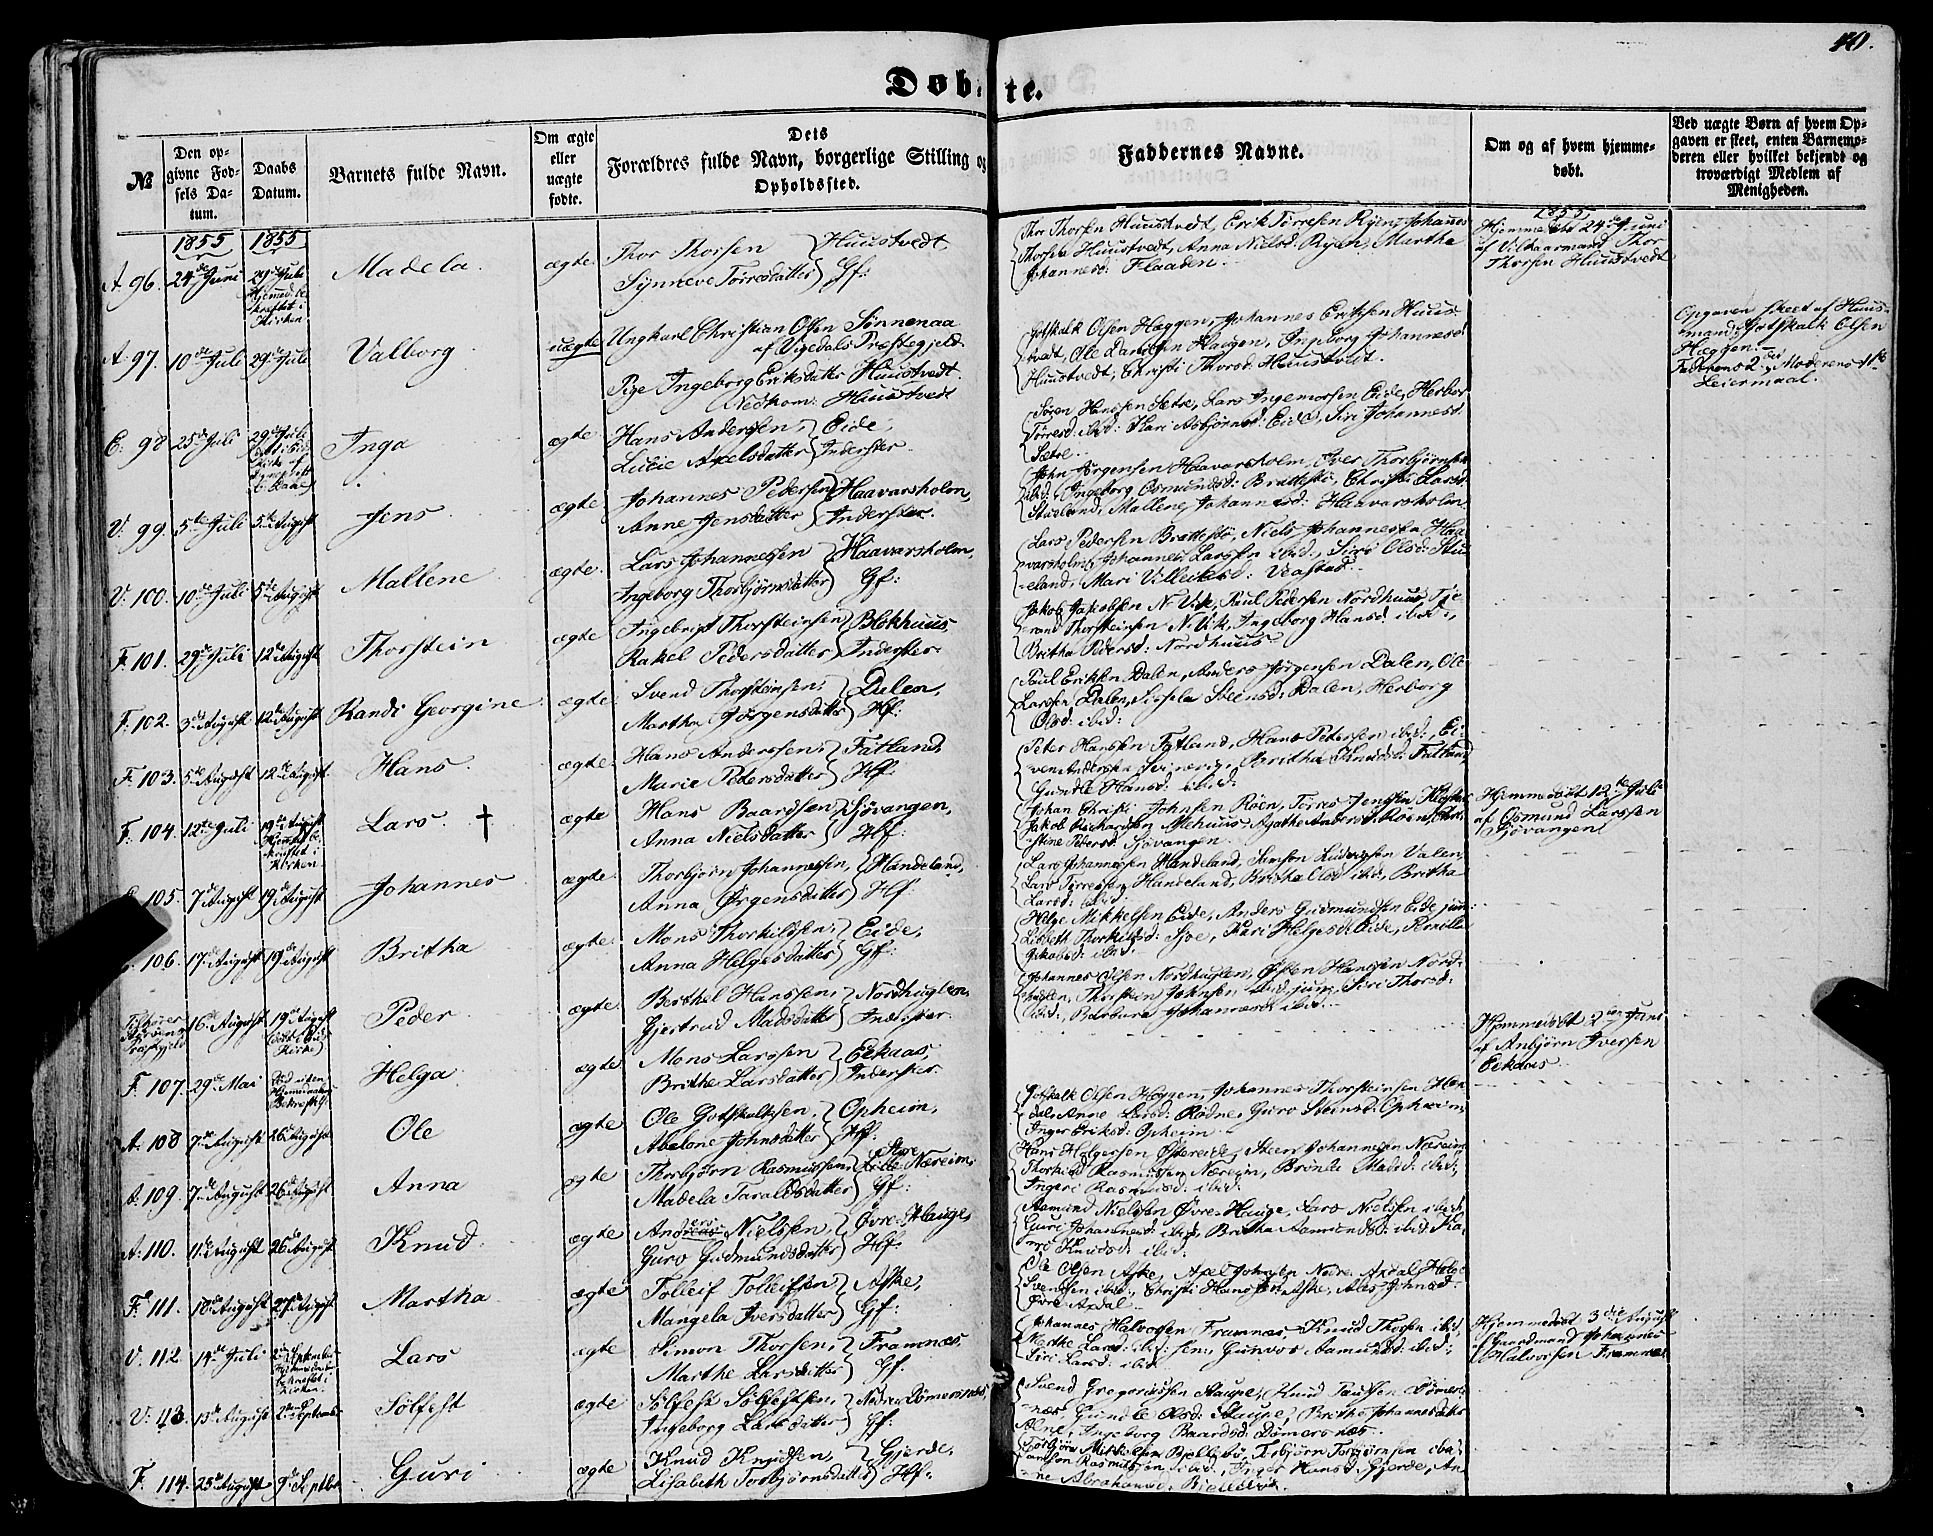 40.
Døbte.
№
Den opgivne Fødsels Datum.
Daabs Datum.
Barnets fulde Navn.
Om ægte eller uægte fødte.
Dets Forældres fulde Navn, borgerlige Stilling og Opholdssted.
Faddernes Navne.
Om og af hvem hjemmedøbt.
Ved uægte Børn af hvem Opgaven er skeet, enten Barnemoderen eller hvilket bekjendt og troværdigt Medlem af Menigheden.
1855 1855 1855
A 96. 24de Juni 29de Juli Hjemmed. bekræftet i Kirken Madela. ægte Thor Thorsen Huustvedt
Synneve Torresdatter Gf:
Thor Thorsen Huustvedt, Erik Torresen Ryen, Johannes
Thorsen Huustvedt, Anna Nielsd: Ryen, Martha
Johannesd: Flaaden.
Hjemmedøbt 24de Juni
af Vilkaarmand Thor
Thorsen Huustvedt
A 97. 10de Juli 29de Juli Valborg uægte Ungkarl Christian Olsen Sønnenaa
af Vigedals Præstegjeld.
Pige Ingeborg Eriksdatter Huustvedt
Huustvedt
Gotskalk Olsen Hæggen, Johannes Eriksen Huus-
tvedt, Ole Danielsen Haugen, Ingeborg Johannesd:
Huustvedt, Christi Thorsd: Huustvedt.
Opgaven skeet af Huus-
mand Gotskalk Olsen
Hæggen.
Faderens 2det, Moderens 1te
Leiermaal.
E. 98 25de Juli 29de Juli Inga ægte Hans Andersen, Eide,
Lucie Axelsdatter Inderster
Søren Hanssen Sætre, Lars Ingemorsen Eide, Herbor
Torresd: ibid: Kari Asbjørnsd: Eide, Siri Johannesd:
Sætre.
V. 99. 5te Juli 5te August Jens ægte Johannes Pedersen Haavarsholm,
Anne Jensdatter Inderster.
John Jørgensen Haavarsholm, Iver Thorbjørnsen
ibid: Ingeborg Osmundsd: Brattestø, Christi Larsd:
Stueland, Mallene Johannesd: Haavarsholm
V: 100. 10de Juli 5te August Mallene ægte. Lars Johannesen Haavarsholm,
Ingeborg Thorbjørnsdatter Gf:
Lars Pedersen Brattestø, Niels Johannesen Haa-
varsholm, Johannes Larssen ibid., Siri Olsd: Stu-
eland, Mari Villeiksd:
F. 101. 29de Juli 12te August Thorstein ægte Ingebrigt Thorsteinsen Blokhuus,
Rakel Pedersdatter Inderster.
Jakob Jakobsen N. Vik, Paul Pedersen Nordhuus, Tje-
rand Thorsteinsen N. Vik, Ingeborg Hansd: ibid:,
Britha Pedersd: Nordhuus
F. 102. 3die August 12te August Randi Georgine ægte Svend Thorsteinsen, Dalen,
Martha Jørgensdatter Hf:
Paul Eriksen Dalen, Anders Jørgensen Dalen, Ole
Larssen Dalen, Sissela Steensd: Dalen, Herborg
Olsd: ibid:
F. 103. 5te August 12te August Hans. ægte Hans Anderssen, Fatland,
Marie Petersdatter Hf:
Peter Hansen Fatland, Hans Petersen ibid:, Ei-
ven Anderssen Svinevig, Britha Knudsd: Fatland,
Gundle Hansd: ibid:
F. 104. 12te Juli 19de August Hjemmed. bekræftet i Kirken Lars. † ægte Hans Baardsen, Sjøvangen,
Anna Nielsdatter Hf:
Johan Christi Johnsen Røen, Torres Jenssen Kloster
Jakob Richardsen Melhuus, Agathe Andersd: Røen, Chri-
stine Petersd: Sjøvangen.
Hjemmedøbt 12te Juli
af Osmund Larssen
Sjøvangen
105. 7de August 19de August Johannes ægte Thorbjørn Johannessen, Handeland,
Anna Ørgensdatter Hf:
Lars Johannessen Handeland, Simson Ludvigsen Valen,
Lars Torressen Handeland, Britha Olsd: ibid:, Britha
Larsd: ibid:
106. 17de August 19de August Britha ægte. Mons Thorkildsen, Eide,
Anna Helgesdatter Gf:
Helge Mikkelsen Eide, Anders Gudmundsen Eide jun:
Lisbeth Thorkildsd: Sjoe, Kari Helgesd: Eide, Pernille
Jakobsd: ibid:
16de August 19de August Peder ægte Berthel Hanssen, Nordhuglen,
Gjertrud Madsdatter Inderster.
Johannes Olsen Nordhuglen, Østen Hanssen Nord-
huglen, Thorstein Johnsen ibid: jun:, Siri Thorsd:
ibid:, Barbara Johannesd: ibid:
F. 107. 29de Mai Helga ægte Mons Larssen Eikaas,
Brithe Larsdatter Inderster
Hjemmedøbt 2den Juni
af Anbjørn Iversen
Eikaas
A. 108 7de August 26de August Ole ægte Ole Gotskalksen, Opheim,
Abelone Johnsdatter Hf:
Gotskalk Olsen Hæggen, Johannes Thorsteinsen Øien
dal, Anne Larsd: Rødne, Guro Steensd: Opheim,
Inger Eriksd: Opheim
A. 109. 7de August 26de August Anna ægte Thorbjørn Rasmussen, Store Lille Næreim,
Madela Taraldsdatter Gf:
Hans Helgersen Østereide, Steen Johannessen Næreim,
Thorkild Rasmussen Næreim, Brynla Madsd: ibid:,
Ingeri Rasmusd: ibid:
A. 110. 11te August 26de August Knud. ægte Anders Nielssen, Øvre-Hauge,
Guro Gudmundsdatter Hf:
Aamund Nielsen Øvre-Hauge, Lars Nielsen ibid:
Guri Johannesd: ibid:, Britha Aamundsd: ibid: Ka-
ri Knudsd: ibid:
F. 111. 18de August 27de August Martha ægte Tolleif Tolleifsen, Aske,
Mangela Iversdatter Gf:
Ole Olsen Aske, Axel Johnsen Nedre Axdal, Helge
Svendsen ibid:, Christi Hansd: Aske, Ales Johnsd:
Øvre Axdal.
V. 112. 14de Juli 2den September Lars ægte Simon Thorsen, Framnæs,
Marthe Larsdatter Gf:
Johannes Halvorsen Framnæs, Knud Thorsen ibid:,
Merthe Larsd: ibid: sen:, Gunvor Aamundsd: ibid:,
Siri Larsd: ibid:
Hjemmedøbt 3die August
Gaardmand Johannes
Halvorsen Framnæs
V: 113. 13de August 2den September Sølfest ægte Sølfest Sølfestsen, Nedre Dømersnæs,
Ingeborg Larsdatter Gf:
Svend Gregoriussen Staupe, Knud Paulsen Dømers-
næs, Gundle Olsd: Staupe, Britha Johannesdatter
Ingeborg Baardsd: Dømersnæs
F. 114. 25de August 9de Septbr Guri ægte Knud Knudsen, Gjerde,
Lisabeth Torbjørnsdatter Hf:
Torbjørn Mikkelsen Bjellebø, Torbjørn Torbjørnsen ibid:
Rasmussen ibid:, Inger Hansd: Gjerde, An-
ne Abrahamsd: